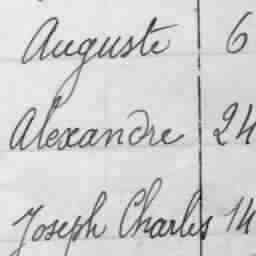 Auguste 6
Alexandre 24
Joseph Charles 14